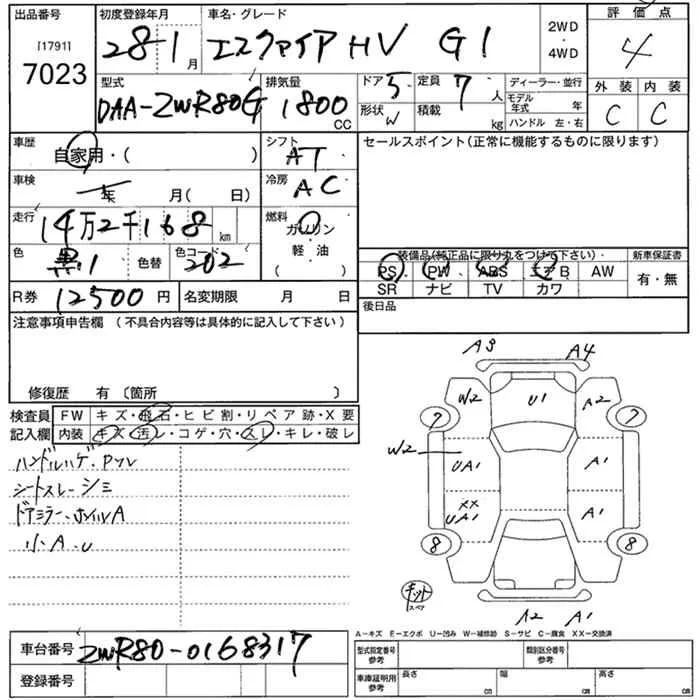 出品番号 初度登録年月 車名・グレード 2WD・4WD 評価点
[1791] 7023 28-1月 エスクァイア HV G1 4
型式 排気量 ドア 5 定員 7人 ディーラー・並行 外装 内装
DAA-ZWR80G 1800CC 形状 W 積載 kg モデル年式 年 C C
ハンドル 左・右
車歴 自家用・( ) シフト AT セールスポイント(正常に機能するものに限ります)
車検 年 月( 日) 冷房 AC
走行 14万2千168km 燃料 ガソリン
色 黒1 色替 色コード 202 軽・油
装備品(純正品に限り丸をつけて下さい) 新車保証書
PS PW ABS エアB AW 有・無
SR ナビ TV カワ
R券 12500円 名変期限 月 日 後日品
注意事項申告欄 (不具合内容等は具体的に記入して下さい)
修復歴 有〔箇所 〕
検査員 FW キズ・飛石・ヒビ割・リペア跡・X要
記入欄 内装 キズ・汚レ・コゲ・穴・スレ・キレ・破レ
ハンドルハゲ・
シートスレ・シミ
ドアミラー・ホイルA
小A.U
A3 A4
W2 U1 A2
7 7
W2 UA1 A1
XX
UA1 A1
8 8
キット
スペア
A2 A1
A−キズ E−エクボ U−凹み W−補修跡 S−サビ C−腐食 XX−交換済
車台番号 ZWR80-0168317 型式指定番号 参考 類別区分番号 参考
登録番号 車庫証明用 参考 長さ cm 幅 cm 高さ cm